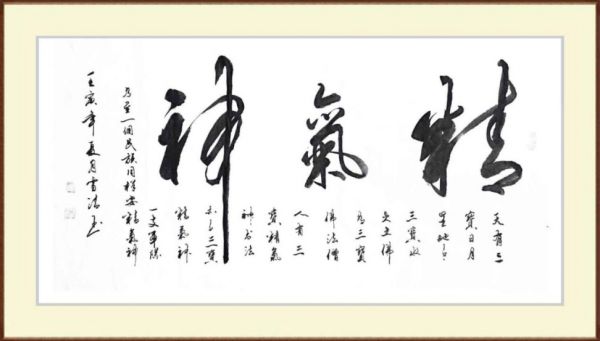 精氣神
天有三
寶日月
星地有
三寶水
火土佛
有三寶
佛法僧
人有三
寶精氣
神书法
亦有三寶
精氣神
一支軍隊
乃至一個民族同樣要精氣神
壬寅年夏月